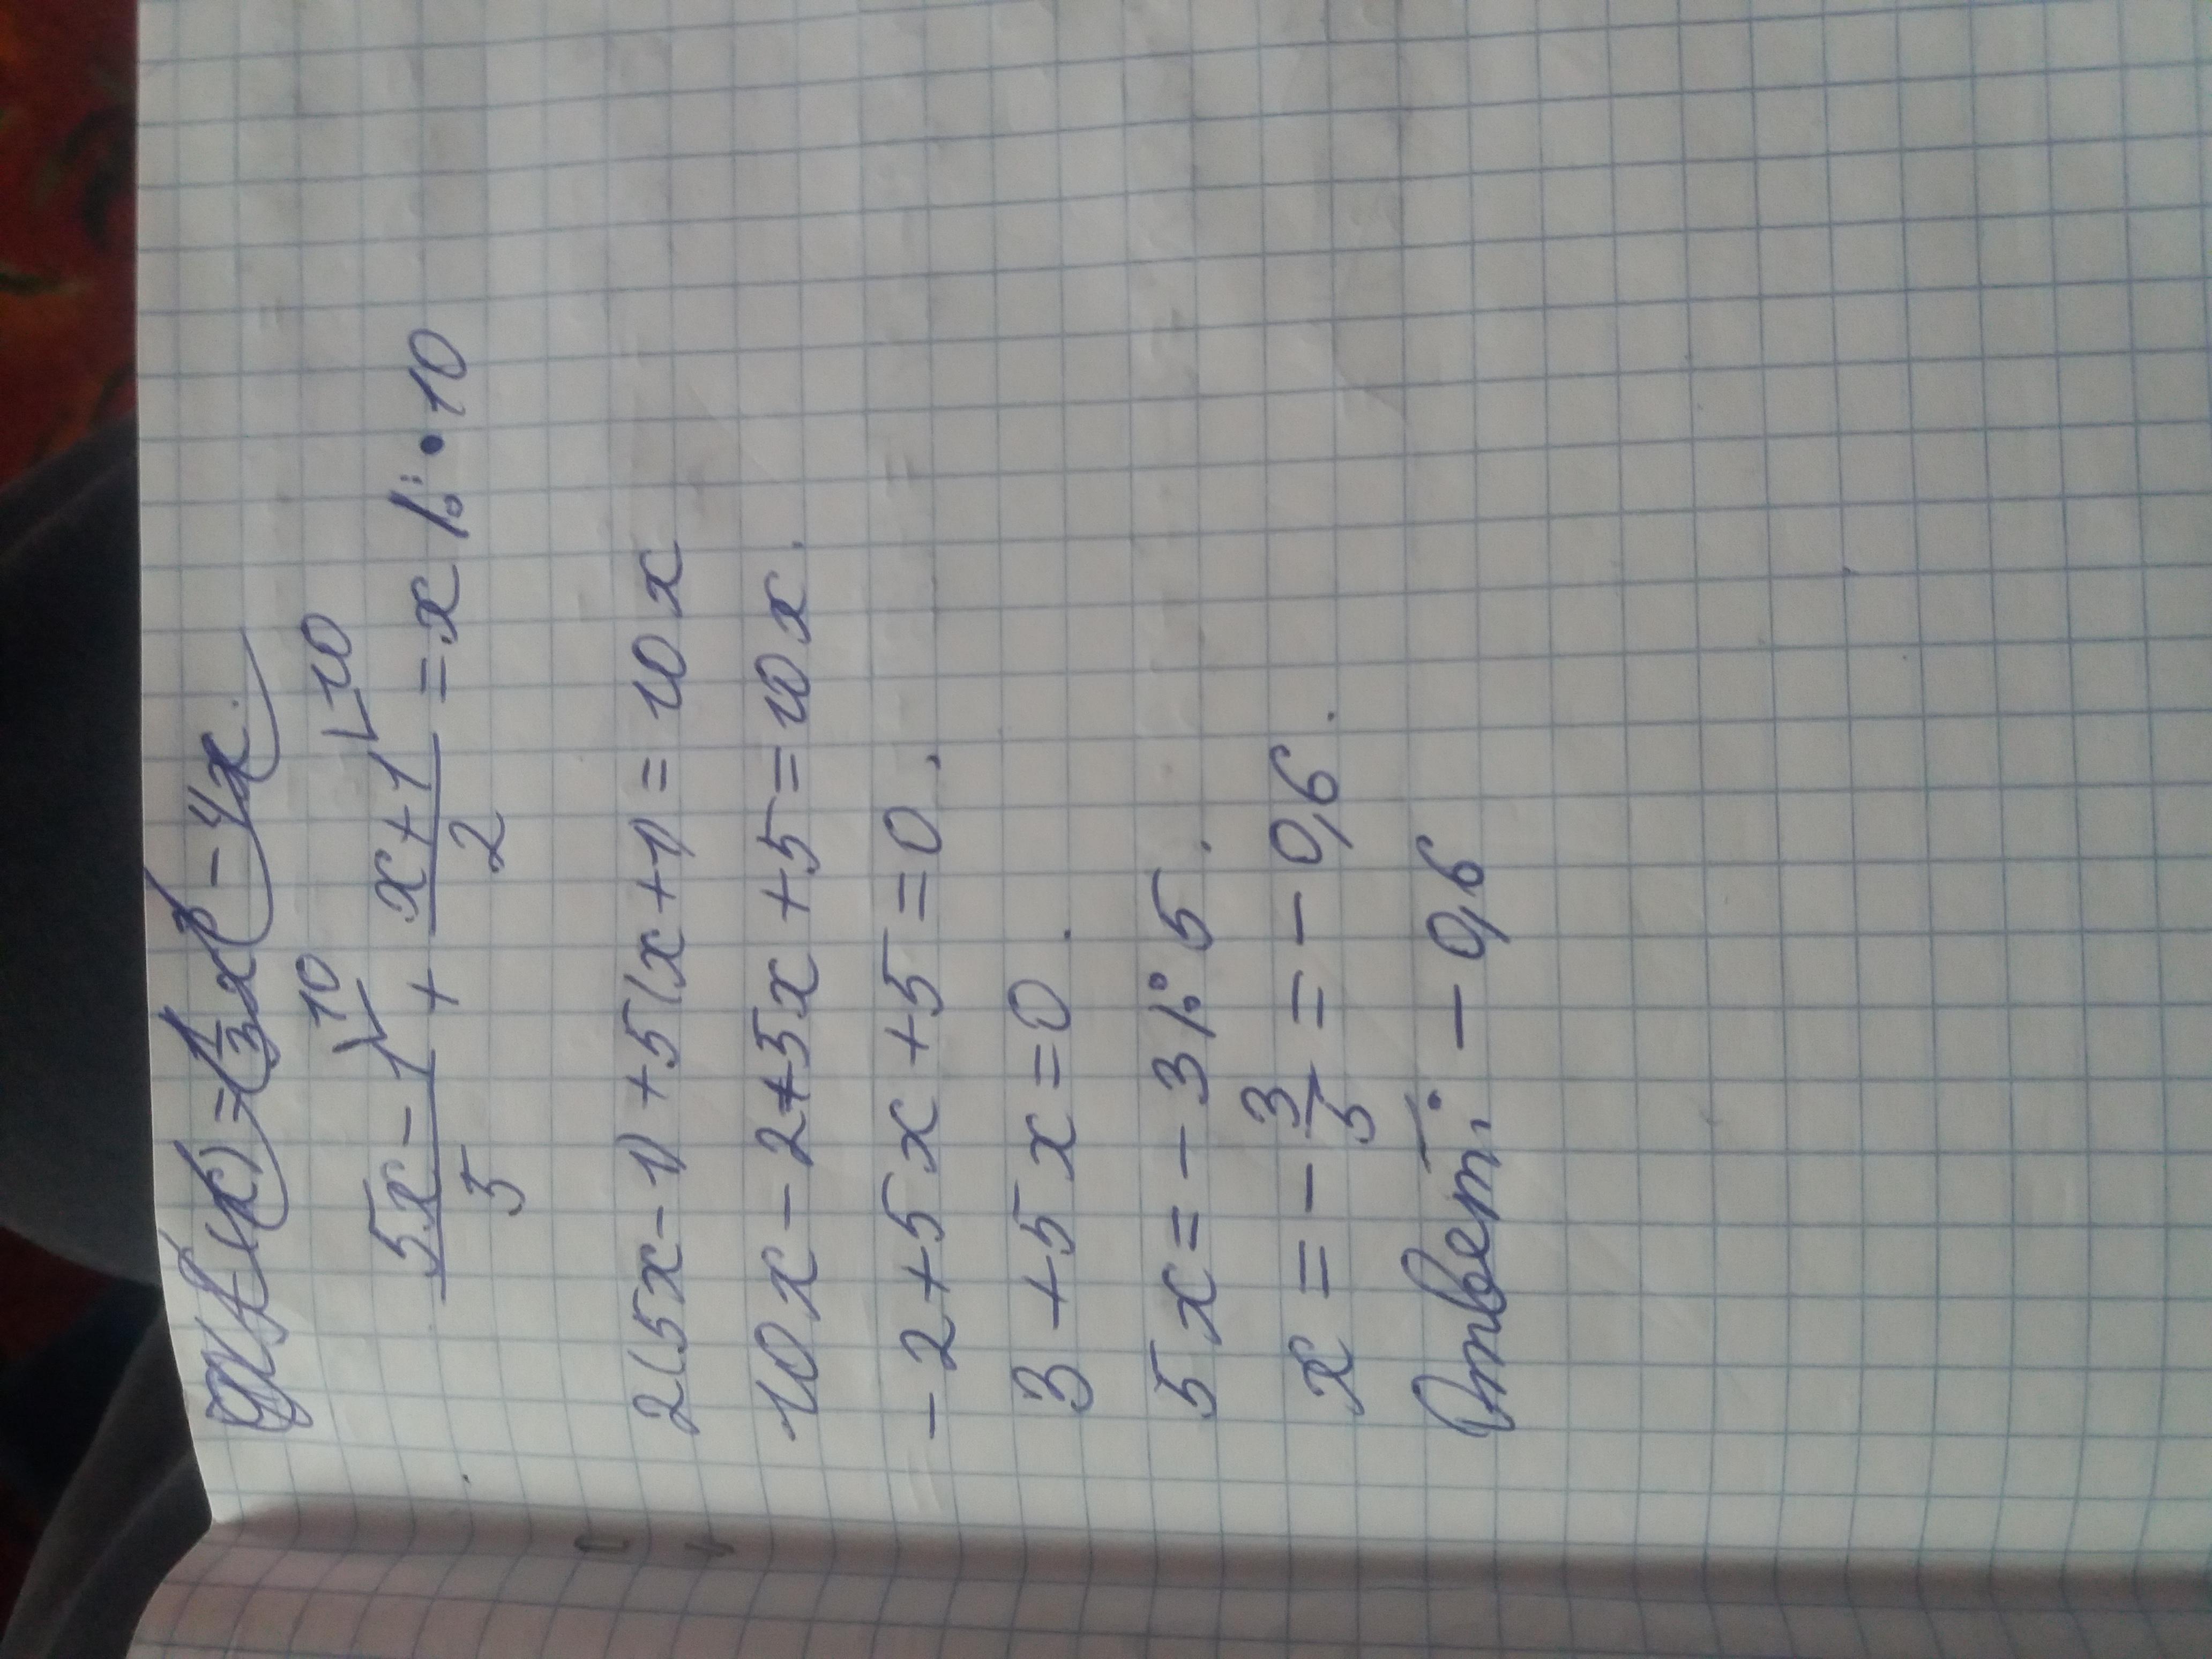 f(x) = 1/3 x³ - 4x.
10 10
(5x - 1)/5 + (x + 1)/2 = x |: • 10
2(5x - 1) + 5(x + 1) = 10x
10x - 2 + 5x + 5 = 10x.
- 2 + 5x + 5 = 0.
3 + 5x = 0.
5x = - 3 |: 5.
x = - 3/5 = - 0,6.
Ответ: - 0,6